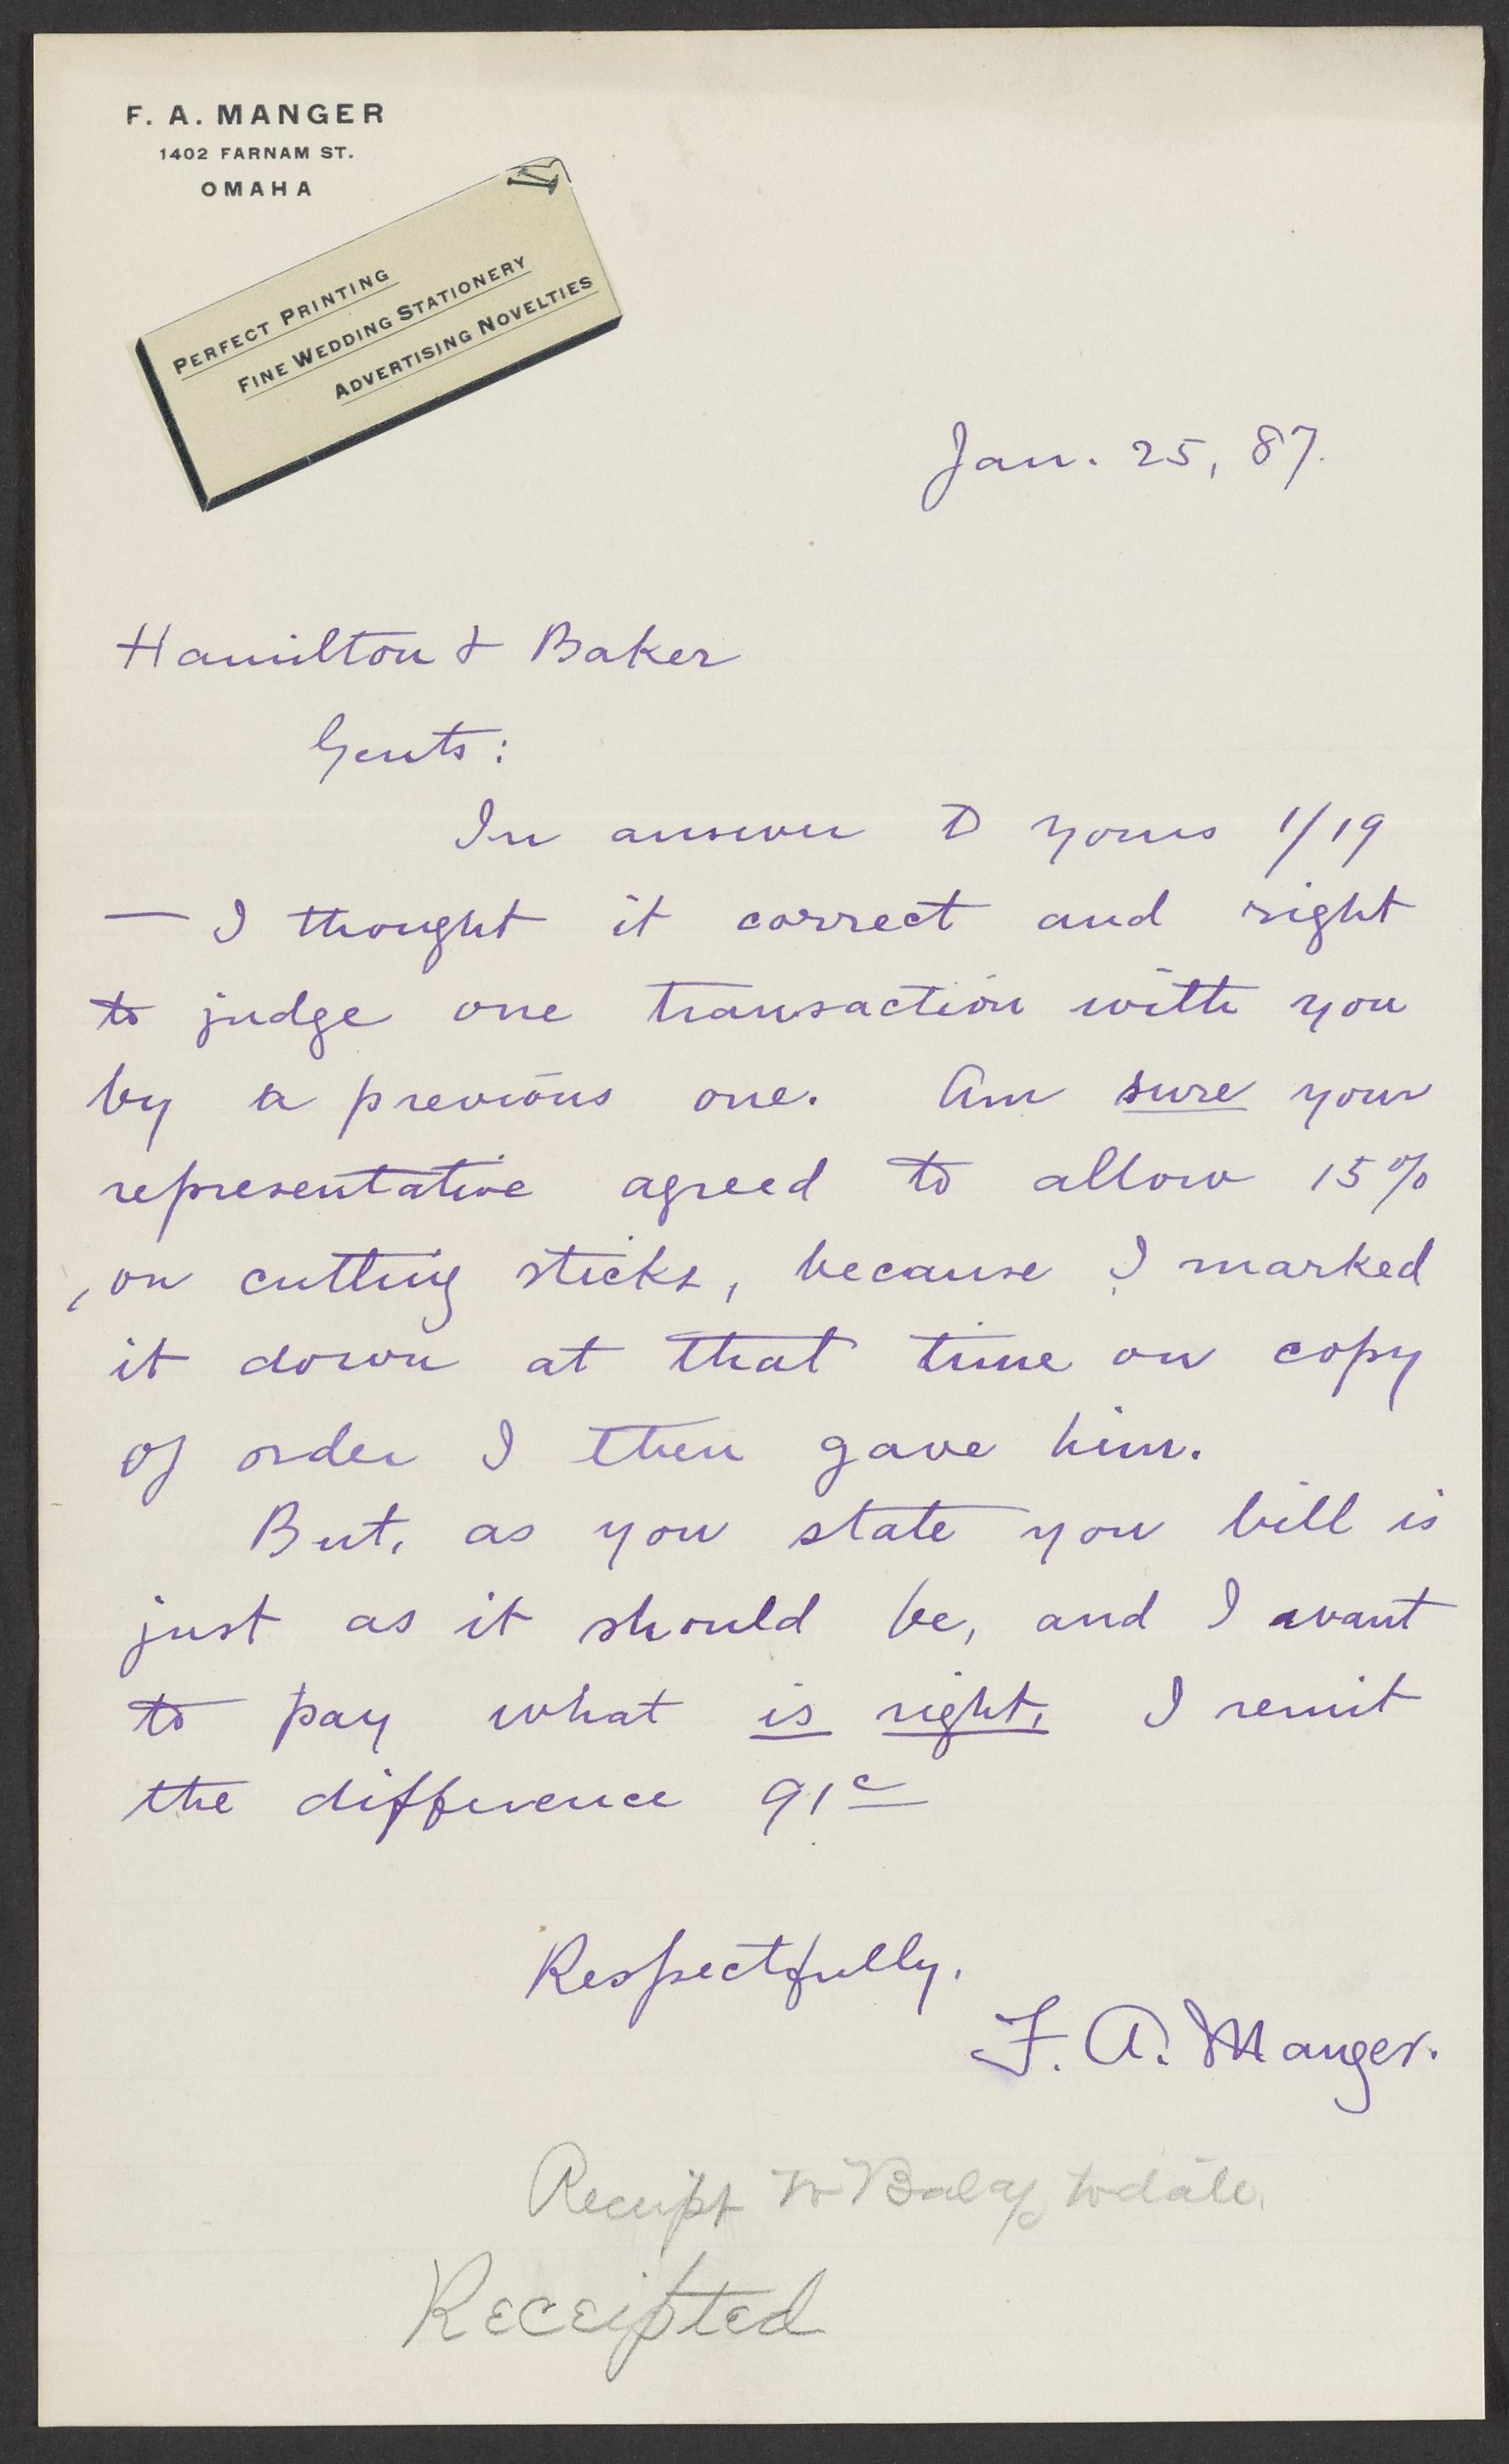 F. A. MANGER
1402 FARNAM ST.
OMAHA
PERFECT PRINTING
FINE WEDDING STATIONERY
ADVERTISING NOVELTIES
Jan. 25, 87.
Hamilton & Baker
Gents:
In answer to yours 1/19
— I thought it correct and right
to judge one transaction with you
by a previous one. Am sure your
representative agreed to allow 15%
on cutting sticks, because I marked
it down at that time on copy
of order I then gave him.
But, as you state you bill is
just as it should be, and I want
to pay what is right, I remit
the difference 91c
Respectfully,
F. A. Manger.
Receipt to todate.
Receipted